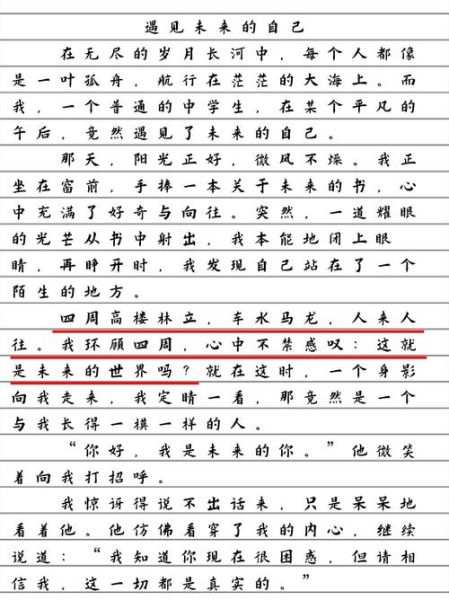 遇见未来的自己
在无尽的岁月长河中，每个人都像
是一叶孤舟，航行在茫茫的大海上。而
我，一个普通的中学生，在某个平凡的
午后，竟然遇见了未来的自己。
那天，阳光正好，微风不燥。我正
坐在窗前，手捧一本关于未来的书，心
中充满了好奇与向往。突然，一道耀眼
的光芒从书中射出，我本能地闭上眼
睛，再睁开时，我发现自己站在了一个
陌生的地方。
四周高楼林立，车水马龙，人来人
往。我环顾四周，心中不禁感叹：这就
是未来的世界吗？就在这时，一个身影
向我走来，我定睛一看，那竟然是一个
与我长得一模一样的人。
“你好，我是未来的你。”他微笑
着向我打招呼。
我惊讶得说不出话来，只是呆呆地
看着他。他仿佛看穿了我的内心，继续
说道：“我知道你现在很困惑，但请相
信我，这一切都是真实的。”